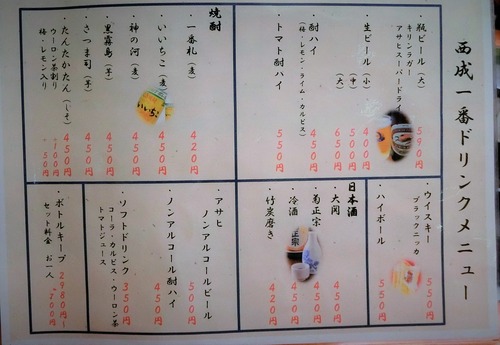 西成一番ドリンクメニュー
・瓶ビール（大） 590円
キリンラガー
アサヒスーパードライ
・生ビール（小） 400円
（中） 500円
（大） 650円
・酎ハイ 450円
（梅・レモン・ライム・カルピス）
・トマト酎ハイ 550円
焼酎
・一番札（麦） 420円
・いいちこ（麦） 450円
・神の河（麦） 450円
・黒霧島（芋） 450円
・さつま司（芋） 450円
・たんたかたん（しそ） 450円
ウーロン茶割り 100円
梅・レモン入り 50円
・ウイスキー
ブラックニッカ 550円
・ハイボール 550円
日本酒
・大関 450円
・菊正宗 450円
・冷酒
・竹炭磨き 420円
・アサヒ
ノンアルコールビール 500円
・ノンアルコール酎ハイ 450円
・ソフトドリンク 350円
コーラ・カルピス・ウーロン茶
トマトジュース
・ボトルキープ 2980円～
セット料金 お一人 200円